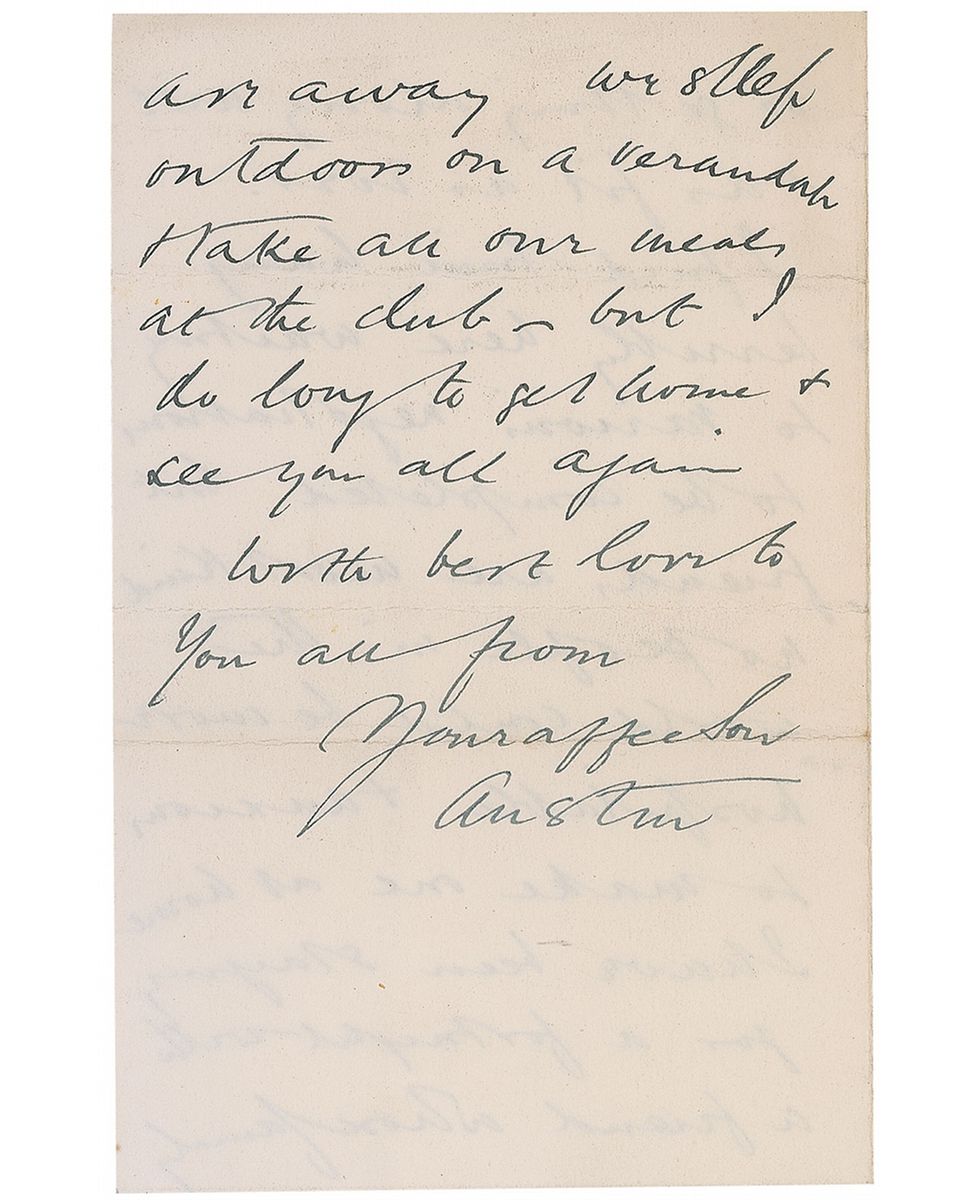 are away we sleep
outdoors on a verandah
& take all our meals
at the club – but I
do long to get home &
see you all again
With best love to
You all from
Your affec Son
Austin